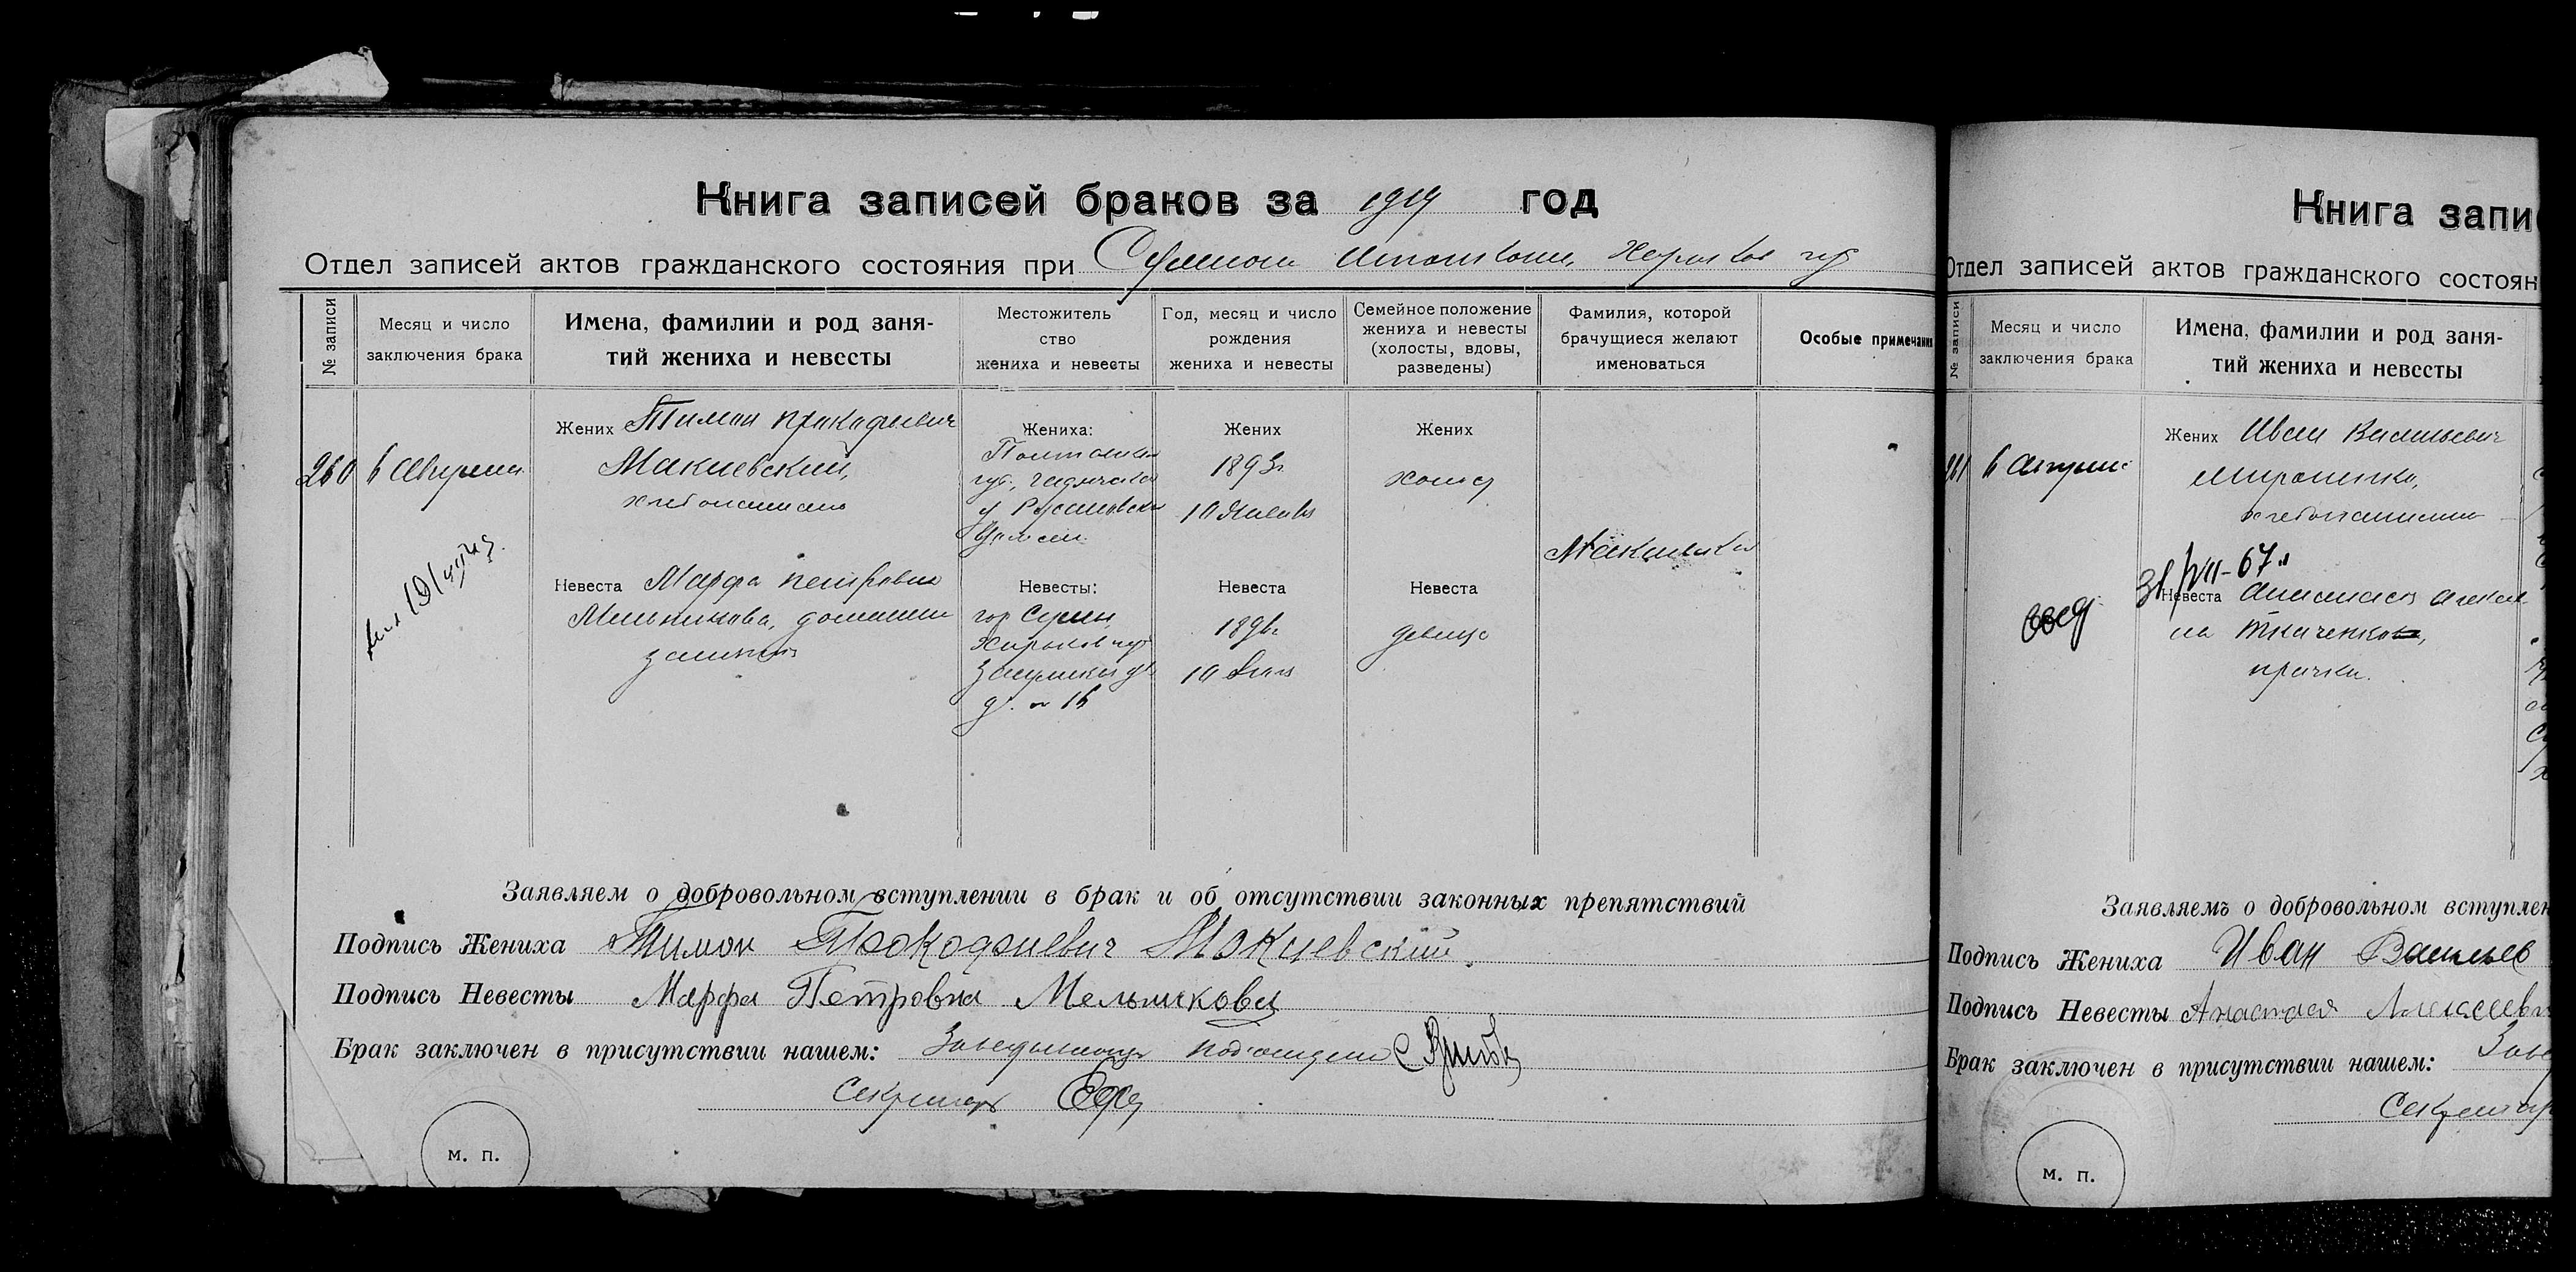 Книга записей браков за 1919 год
Отдел записей актов гражданского состояния при Сумском Исполкоме, Харьков губ
№ записи
Месяц и число
заключения брака
Имена, фамилии и род заня-
тий жениха и невесты
Местожитель
ство
жениха и невесты
Год, месяц и число
рождения
жениха и невесты
Семейное положение
жениха и невесты
(холосты, вдовы,
разведены)
Фамилия, которой
брачущиеся желают
именоваться
Особые примечания
260
6 Апреля
Жених Тимон Прокофиевич
Макиевский,
хлебопашец
Невеста Марфа Петровна
Мельникова, домашние
занятия
Жениха:
Полтавск
губ., Гадячского
у Русановской
Невесты:
гор Сумы
Харьков губ
д. № 16
Жених
1893г
10 Января
Невеста
1896г
10
Жених
холост
Невеста
девица
Макиевские
Заявляем о добровольном вступлении в брак и об отсутствии законных препятствий
Подпись Жениха Тимон Прокофиевич Макиевский.
Подпись Невесты Марфа Петровна Мельникова
Брак заключен в присутствии нашем: Заведывающий подотделом
Секретарь
м. п.
Книга запи
Отдел записей актов гражданского состоян
№ записи
Месяц и число
заключения брака
Имена, фамилии и род заня-
тий жениха и невесты
261
6 Апреля
Жених Иван Васильевич
Мирошенко,
хлебопашец
VII-67
Невеста Анастасия Алексеев
на Ткаченко,
прачка.
Заявляемъ о добровольном вступлен
Подпись Жениха Иван Васильев
Подпись Невесты Анастасия Алексеевн
Брак заключен в присутствии нашем: Заве
Секретарь
м. п.